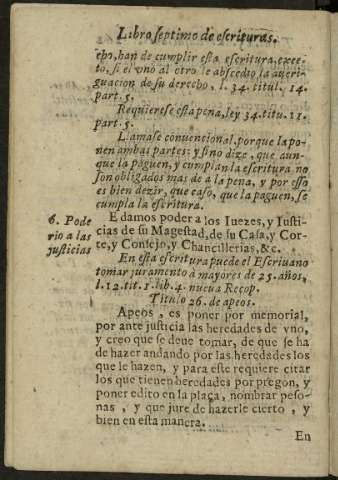 Libro septimo de escrituras.
cho, han de cumplir esta escritura, excep-
to, si el vno al otro le absoedio la aueri-
guacion de su derecho, l. 34. titul. 14.
part. 5.
Requierese esta pena, ley 34. titu. 11.
part. 5.
Llamase conuencional, porque la po-
nen ambas partes: y sino dize, que aun-
que la paguen, y cumplan la escritura no
son obligados mas de a la pena, y por esso
es bien dezir, que caso, que la paguen, se
cumpla la escritura.
6. Pode
rio a las
justicias
E damos poder a los Iuezes, y Iusti-
cias de su Magestad, de su Casa, y Cor-
te, y Consejo, y Chancillerias, &c.
En esta escritura puede el Escriuano
tomar juramento à mayores de 25. años,
l. 12. tit. 1. lib. 4. nueua Recop.
Titulo 26. de apeos.
Apeos, es poner por memorial,
por ante justicia las heredades de vno,
y creo que se deue tomar, de que se ha
de hazer andando por las heredades los
que le hazen, y para este requiere citar
los que tienen heredades por pregon, y
poner edito en la plaça, nombrar peso-
nas, y que jure de hazerle cierto, y
bien en esta manera.
En